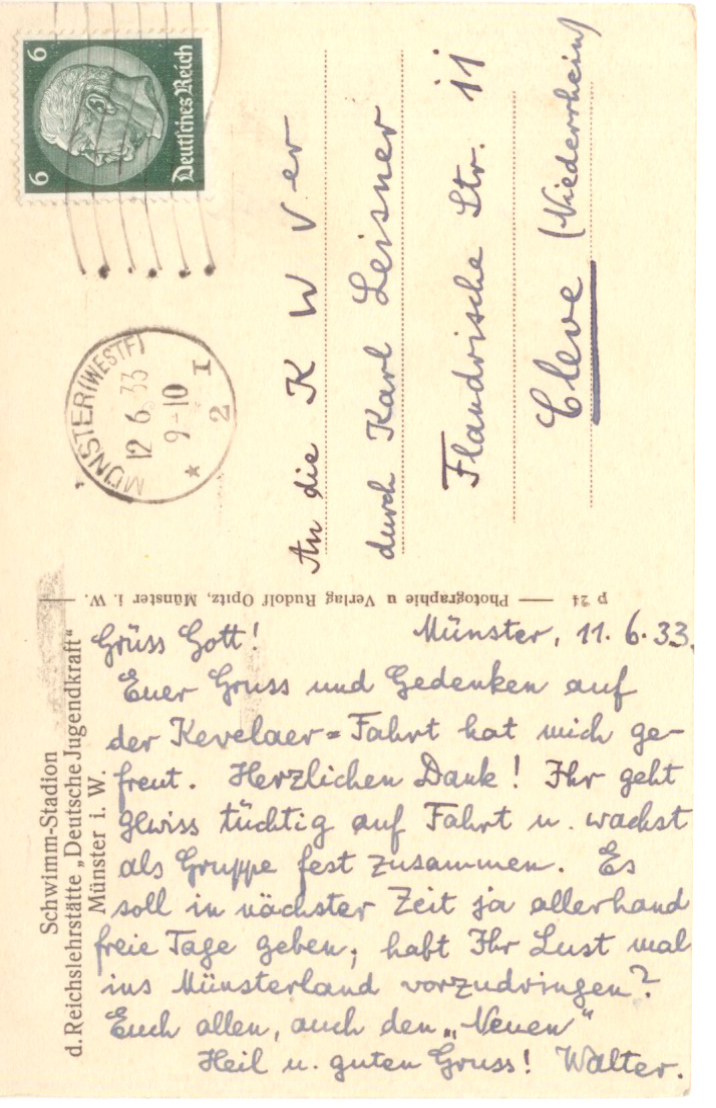 6 6
Deutsches Reich
MÜNSTER (WESTF)
12 6 33
9-10
* 2 I
An die K W Ver
durch Karl Leisner
Flandrische Str. 11
Cleve (Niederrhein)
p 24 — Photographie u Verlag Rudolf Opitz, Münster i. W. —
Schwimm-Stadion
d. Reichslehrstätte „Deutsche Jugendkraft“
Münster i. W.
Grüss Gott! Münster, 11. 6. 33.
Euer Gruss und Gedenken auf
der Kevelaer=Fahrt hat mich ge-
freut. Herzlichen Dank! Ihr geht
gewiss tüchtig auf Fahrt u. wachst
als Gruppe fest zusammen. Es
soll in nächster Zeit ja allerhand
freie Tage geben; habt Ihr Lust mal
ins Münsterland vorzudringen?
Euch allen, auch den „Neuen“
Heil u. guten Gruss! Walter.